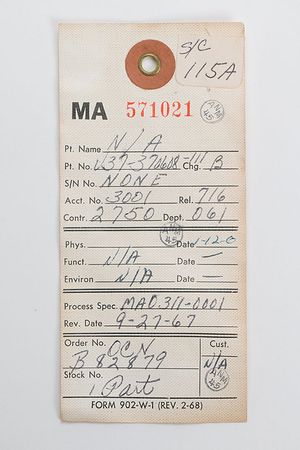 S/C
115A
MA 571021
ANM 45
Pt. Name N/A
Pt. No. V37-370608-111 Chg. B
S/N No. NONE
Acct. No. 3001 Rel. 716
Contr. 2750 Dept. 061
Phys. ANM 45 Date 1-12-0
Funct. N/A Date —
Environ N/A Date —
Process Spec. MA0311-0001
Rev. Date 9-27-67
Order No. OCN Cust.
B 82879 N/A
Stock No. ANM 45
1 Part
FORM 902-W-1 (REV. 2-68)